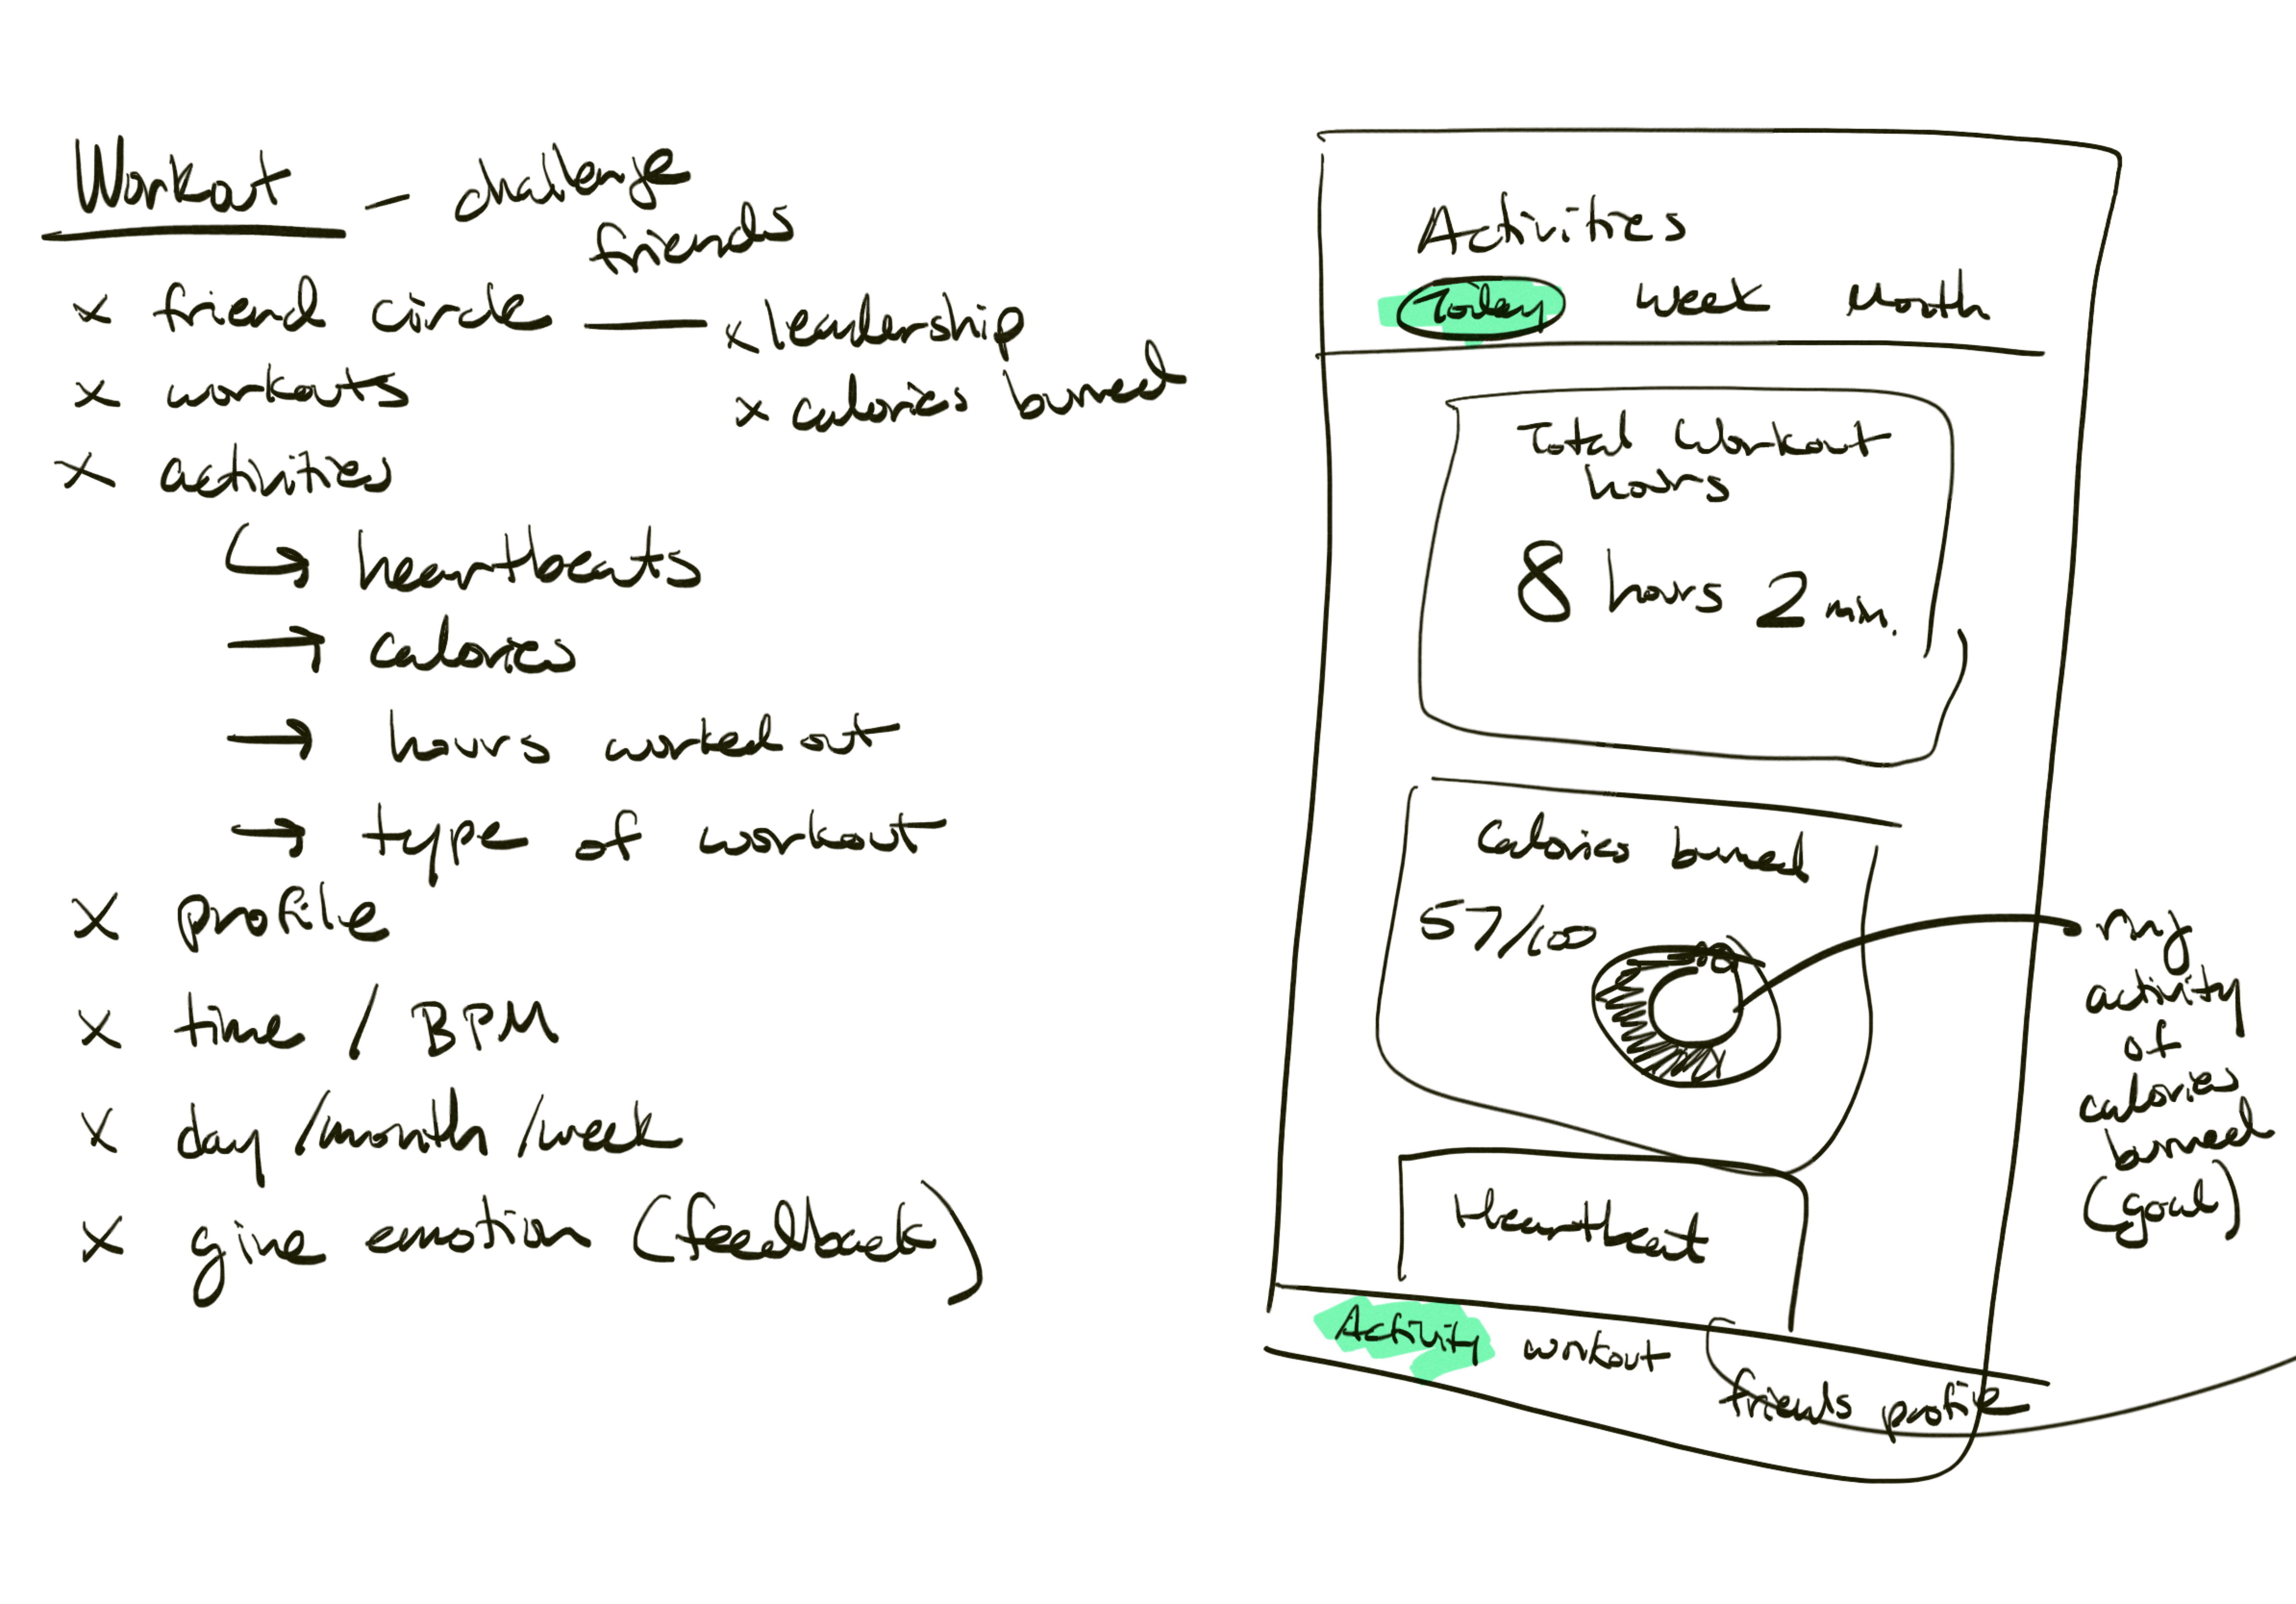 Workout - challenge
friends
x friend circle — x leadership
x calories burned
x workouts
x activities
↳ heartbeats
→ calories
→ hours worked out
→ type of workout
x profile
x time / BPM
x day /month /week
x give emotion (feedback)
Activities
Today week Month
Total Workout
hours
8 hours 2 min.
Calories burned
57/100
Heartbeat
Activity workout friends profile
ring
activity
of
calories
burned
(goal)